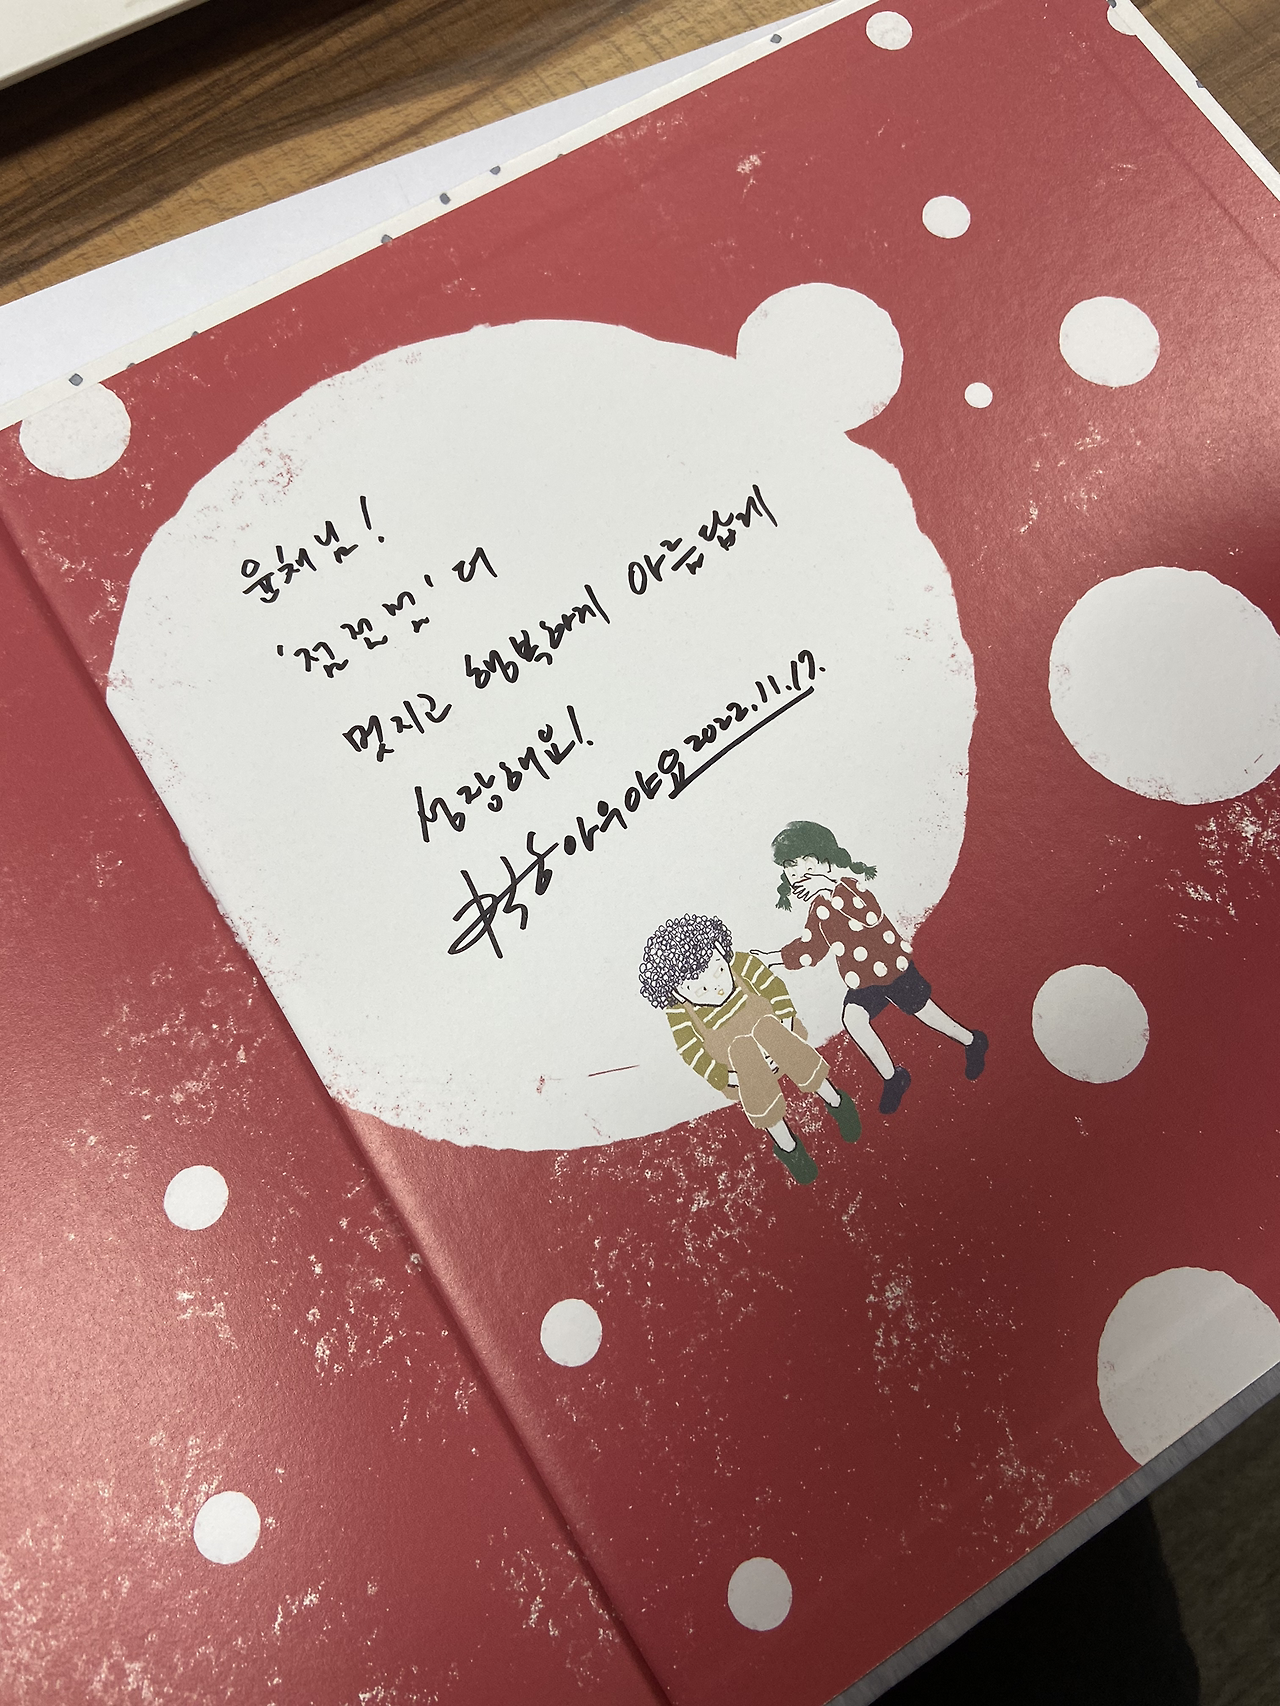 윤채님!
'점점 멀' 더
멋지고 행복하게 아름답게
성장해요!
아우야요 2022.11.17.